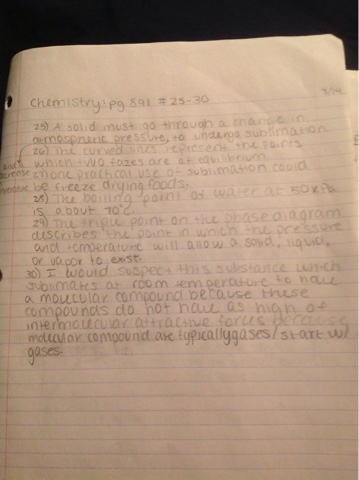 Chemistry: pg 891 #25-30
25) A solid must go through a change in
atmospheric pressure, to undergo sublimation
26) The curved lines represent the points
which two fazes are at equilibrium.
27) one practical use of sublimation could
be freeze drying foods.
28) The boiling point of water at 50 kPa
is about 70°C.
29) The triple point on the phase diagram
describes the point in which the pressure
and temperature will allow a solid, liquid,
or vapor to exist.
30) I would suspect this substance which
sublimates at room temperature to have
a molecular compound because these
compounds do not have as high of
intermolecular attractive forces because
molecular compound are typically gases/start w/
gases.